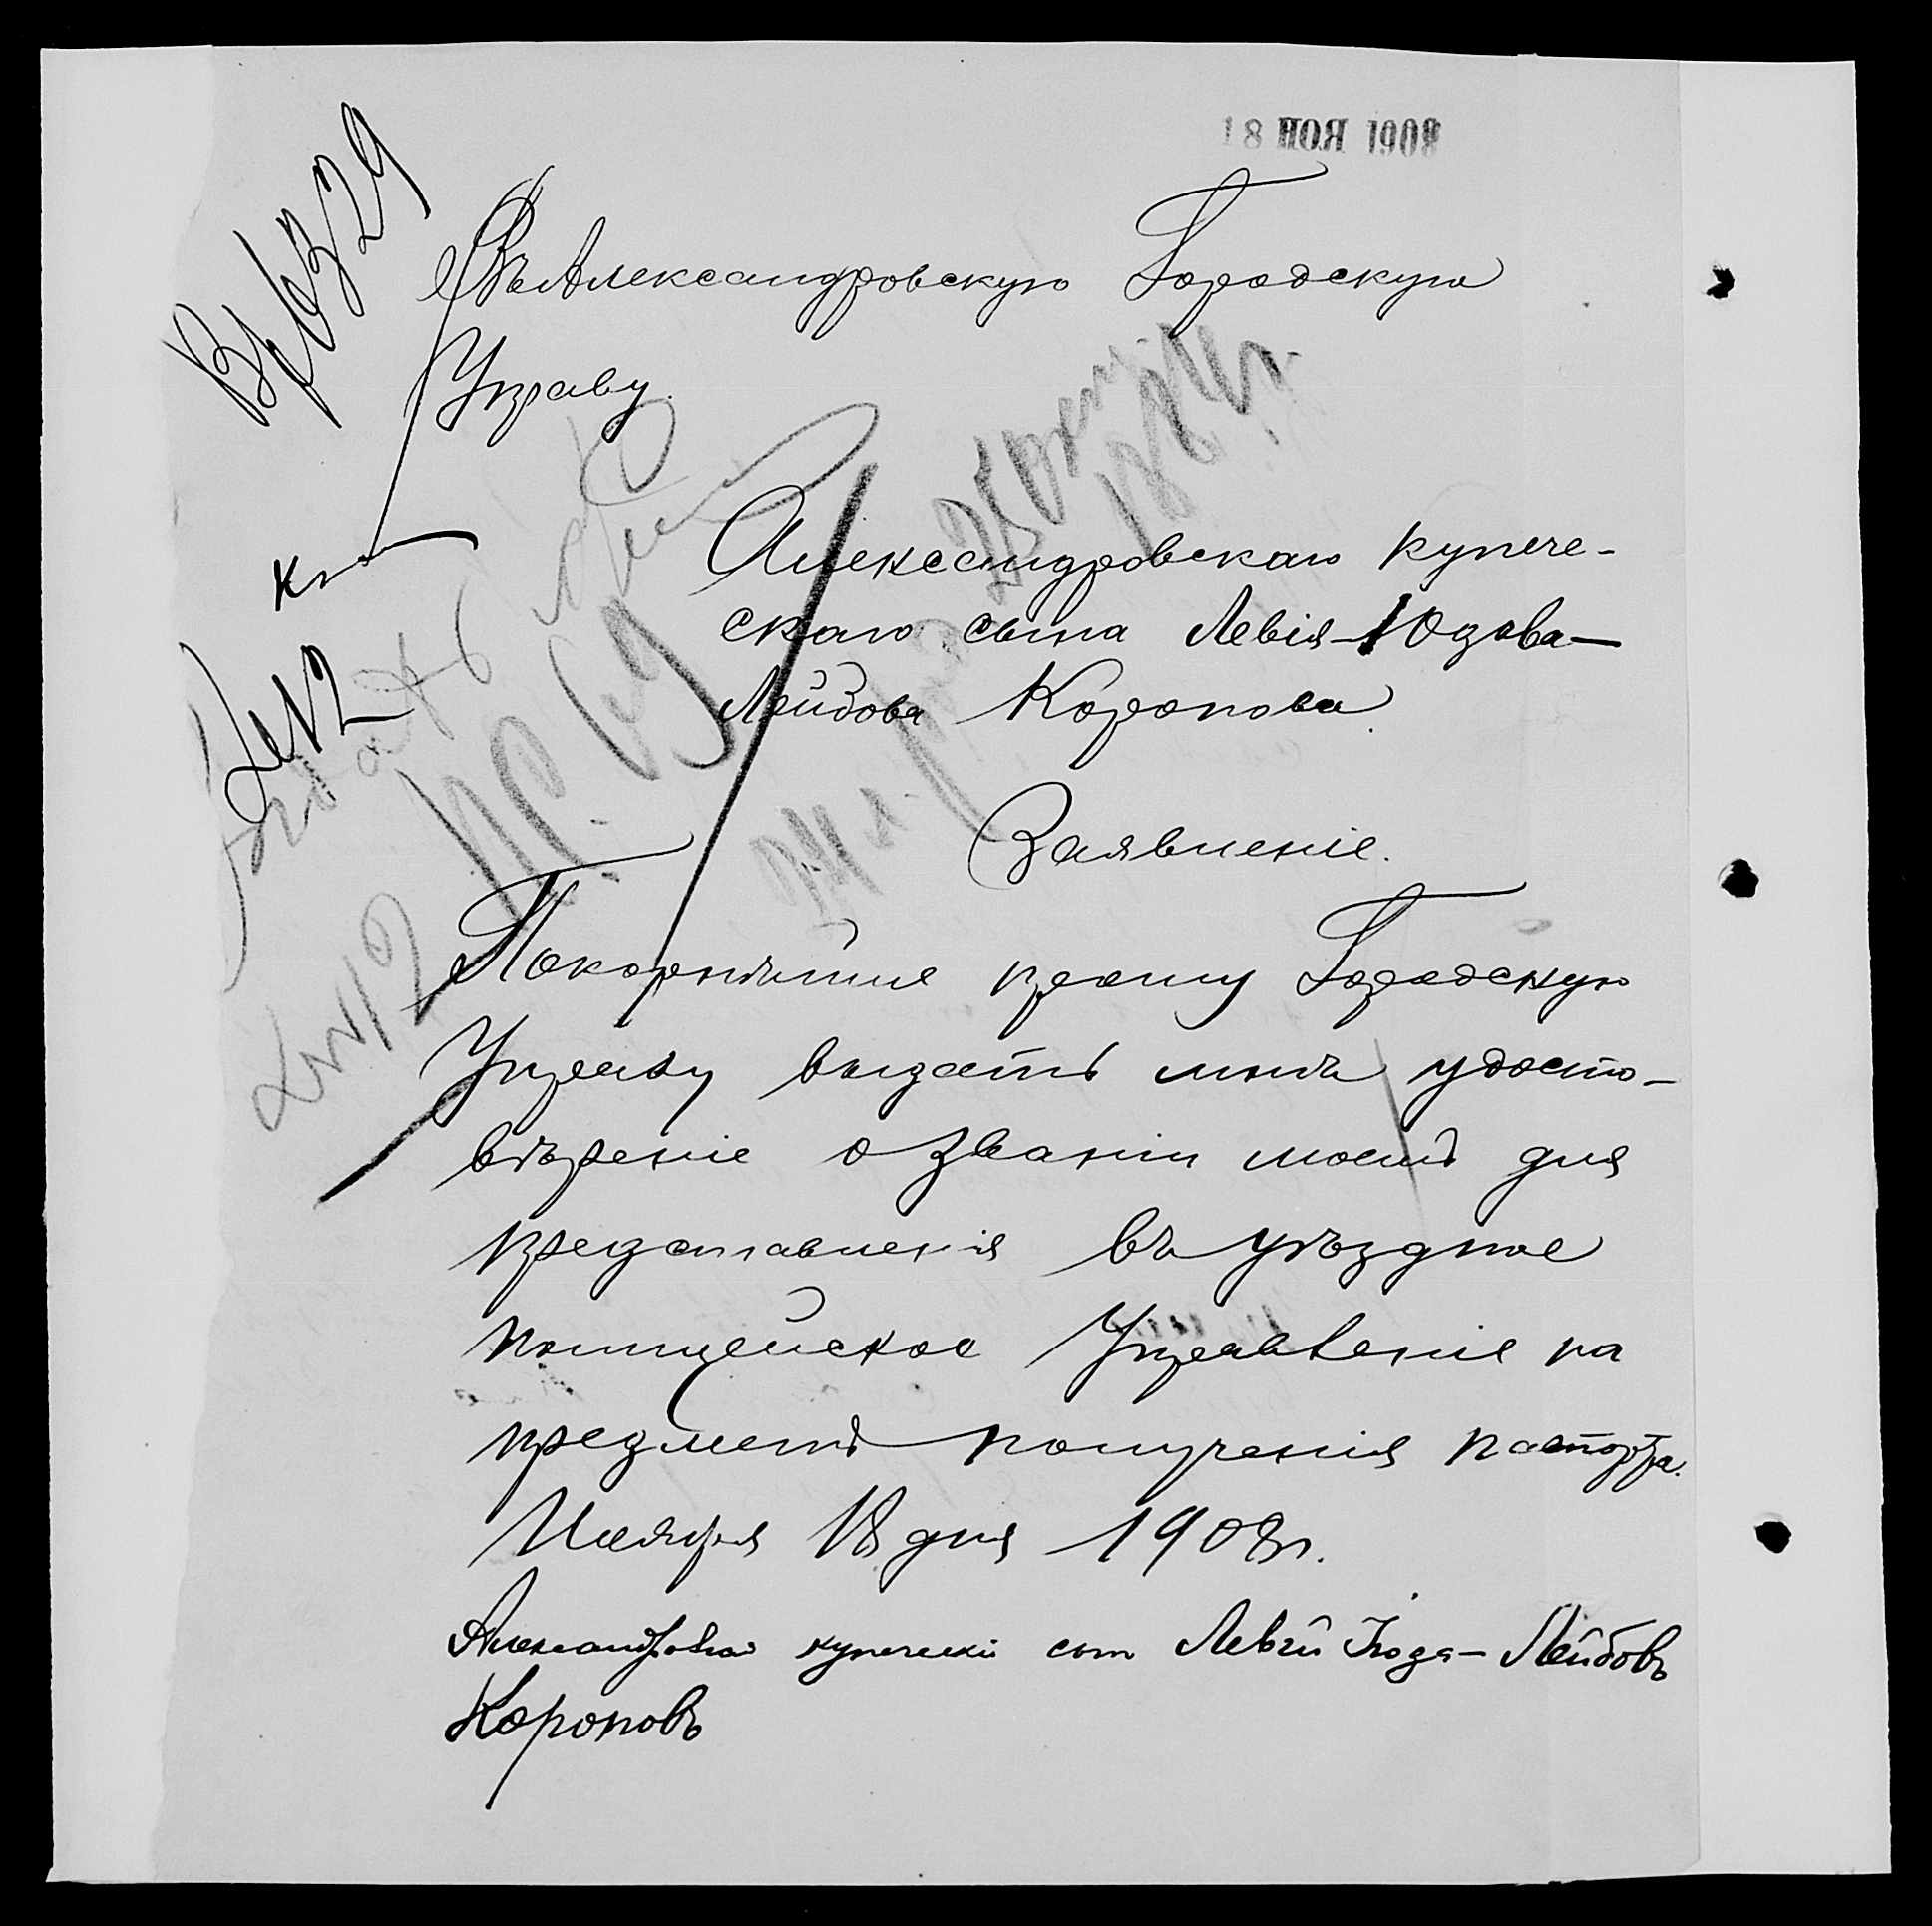 18 НОЯ 1908
Въ Александровскую Городскую
Управу.
Александровскаго купече-
скаго сына Левія-Юдова-
Лейбова Коропова.
Заявленіе.
Покорнѣйше прошу Городскую
Управу выдать мнѣ удосто-
вѣреніе о званіи моемъ для
представленія въ уѣздное
полицейское Управленіе на
предметъ полученія паспорта.
Ноября 18 дня 1908 г.
купеческій сын Левій Іюда-Лейбовъ
Короповъ